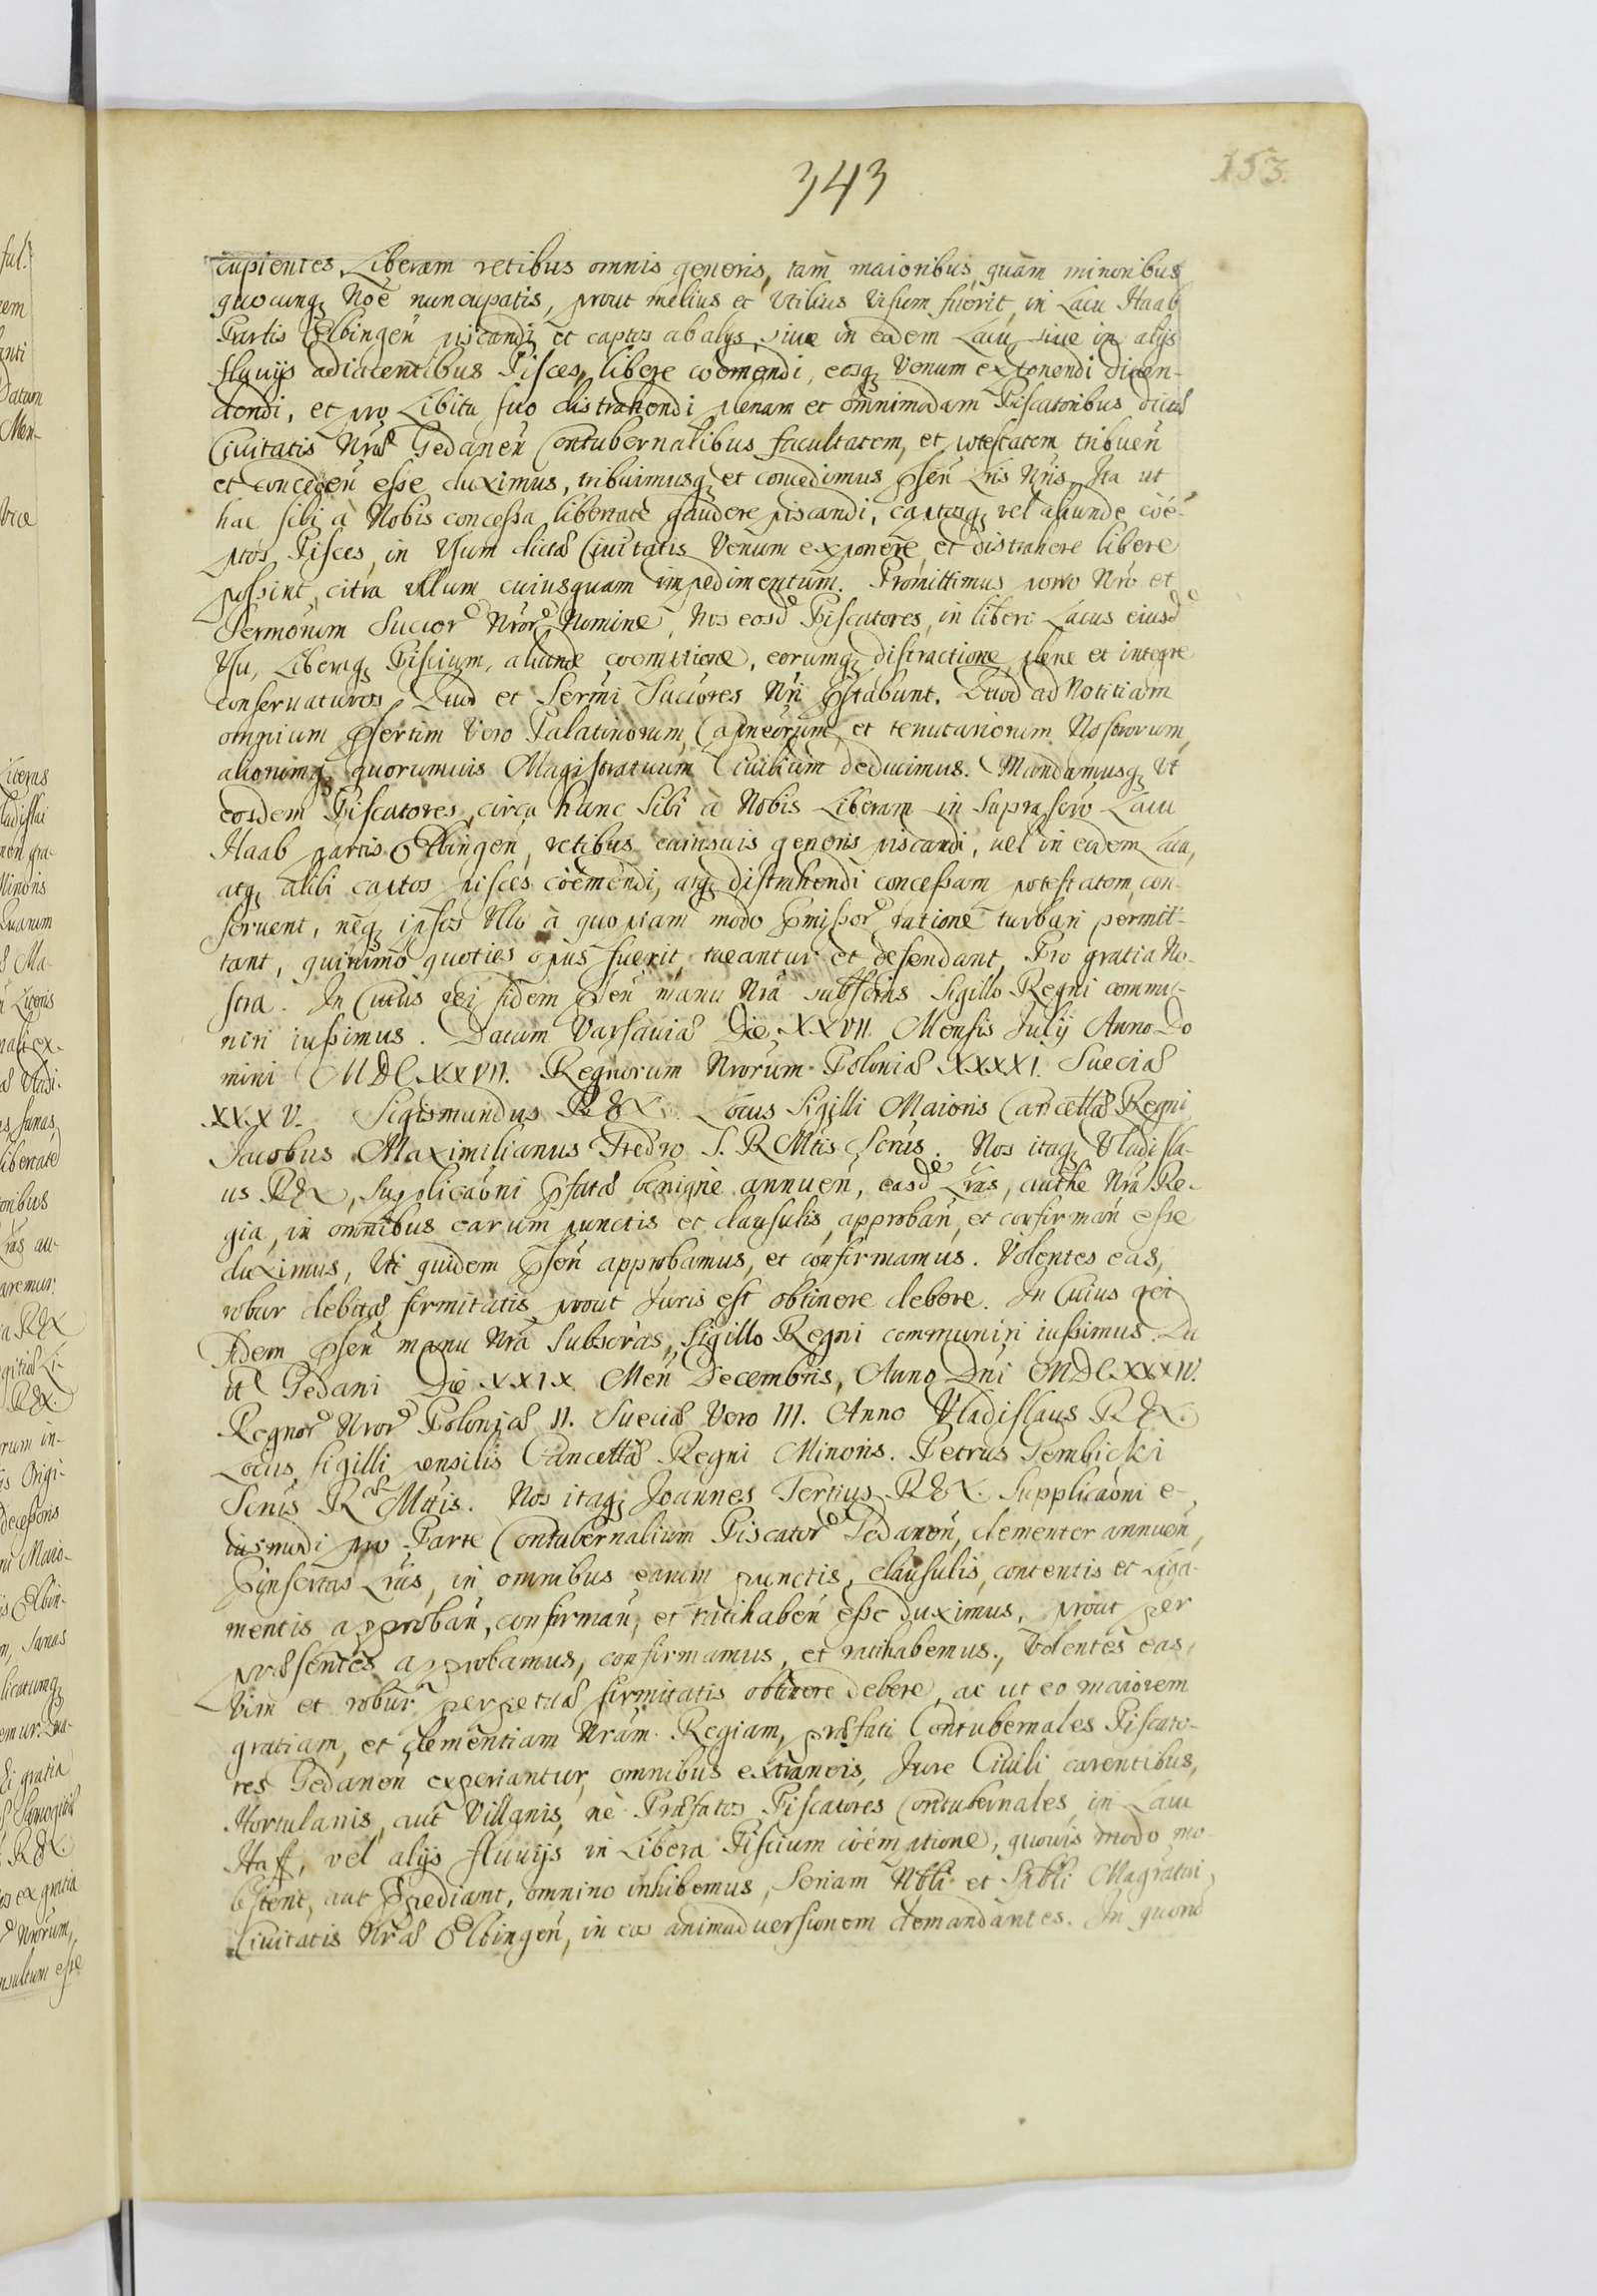 343
153.
cupientes, Liberam retibus omnis generis, tam maioribus, quàm minoribus
quocunq; Noê nuncupatis, prout melius et Utilius Visum fuerit, in Lacu Haab
Partis Elbingeñ piscandi, et captos ab alijs, siue in eodem Lacu, siue in alijs
fluuijs adiacentibus Pisces, libere coëmendi, eosq; Venum exponendi diuen-
dendi, et pro Libitu suo distrahendi plenam et omnimodam Piscatoribus dictæ
Ciuitatis Nræ Gedaneñ Contubernalibus facultatem, et potestatem tribueñ
et concedeñ esse duximus, tribuimusq; et concedimus pseñ Lris Nris, Ita ut
hac sibi à Nobis concessa libertate gaudere piscandi, captosq; vel aliunde coë-
ptos Pisces, in Usum dictæ Ciuitatis Venum exponere, et distrahere libere
possint, citra ullum cuiusquam impedimentum. Promittimus porro Nro et
Sermorum Succor Nror Nomine, Nos eosd Piscatores, in liberi Lacus eiusd
Usu, Liberaq; Piscium, aliunde coemptione, eorumq; distractione, plene et integre
conseruaturos. Quod et Sermi Succores Nri pstabunt. Quod ad Notitiam
omnium psertim Vero Palatinorum, Capneorum, et tenutariorum Nostrorum,
aliorumq; quorumuis Magistratuum Ciuilium deducimus. Mandamusq; Ut
eosdem Piscatores, circa hanc Sibi à Nobis Liberam in supra scro Lacu
Haab partis Elbingeñ, retibus cuiusuis generis piscandi, uel in eodem Lacu,
atq; alibi captos pisces coëmendi, atq; distrahendi concessam potestatem, con-
seruent, neq; ipsos Ullo à quopiam modo pmissor ratione turbari permit-
tant, quinimo quoties opus fuerit, tueantur et defendant, Pro gratia No-
stra. In Cuius rei fidem pseñ manu Nrâ subscras Sigillo Regni commu-
niri iussimus. Datum Varsauiæ Die XXVII. Mensis Julij Anno Do
mini MDCXXVII. Regnorum Nrorum Poloniæ XXXXI. Sueciæ
XXXV. Sigismundus REX. Locus Sigilli Maioris Cancellæ Regni
Jacobus Maximilianus Fredro S. R. Mtis Scrius. Nos itaq; Vladisla-
us REX, supplicaôni pfatæ benigne annueñ, easd Lras, authe Nra Re-
gia, in omnibus earum punctis et clausulis, approbañ, et confirmañ esse
duximus, Uti quidem pseñ approbamus, et confirmamus. Volentes eas,
robur debitæ firmitatis, prout Juris est obtinere debere. In Cuius rei
Fidem pseñ manu Nra Subscras, Sigillo Regni communiri iussimus. Da
tæ Gedani Die XXIX Meñ Decembris, Anno Dni MDCXXXIV.
Regnor Nror Poloniæ II. Sueciæ Vero III. Anno Vladislaus REX.
Locus sigilli pensilis Cancellæ Regni Minoris. Petrus Gembicki
Scrius R Mtis. Nos itaq; Joannes Tertius REX. Supplicaôni e-
iusmodi pro Parte Contubernalium Piscator Gedaneñ, clementer annueñ,
pinsertas Lras, in omnibus earum punctis, clausulis, contentis et Liga-
mentis approbañ, confirmañ, et ratihabeñ esse duximus, prout per
præsentes approbamus, confirmamus, et ratihabemus, Volentes eas
Vim et robur perpetuæ firmitatis obtinere debere, ac ut eo maiorem
gratiam, et clementiam Nram Regiam, præfati Contubernales Piscato-
res Gedaneñ experiantur, omnibus extraneis, Jure Ciuili carentibus,
Hortulanis, aut Villanis, nè Præfatos Piscatores Contubernales, in Lacu
Haff, vel alijs fluuijs in Libera Piscium coëmptione, quouis modo mo-
lestent, aut Ppediant, omnino inhibemus, Seriam Nbli et Spbli Magratui,
Ciuitatis Nræ Elbingeñ, in eos animaduersionem demandantes. In quoru